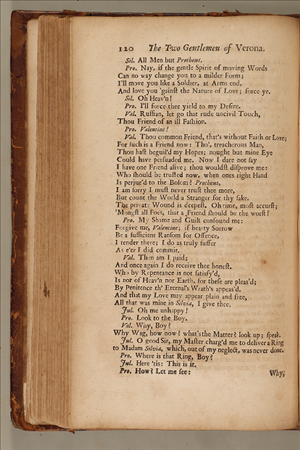 120 The Two Gentlemen of Verona.
Sil. All Men but Protheus.
Pro. Nay, if the gentle Spirit of moving Words
Can no way change you to a milder Form;
I'll move you like a Soldier, at Arms end,
And love you 'gainst the Nature of Love; force ye.
Sil. Oh Heav'n!
Pro. I'll force thee yield to my Desire.
Val. Ruffian, let go that rude uncivil Touch,
Thou Friend of an ill Fashion.
Pro. Valentine!
Val. Thou common Friend, that's without Faith or Love;
For such is a Friend now: Tho', treacherous Man,
Thou hast beguil'd my Hopes; nought but mine Eye
Could have persuaded me. Now I dare not say
I have one Friend alive; thou wouldst disprove me:
Who should be trusted now, when ones right Hand
Is perjur'd to the Bosom? Protheus,
I am sorry I must never trust thee more,
But count the World a Stranger for thy sake.
The private Wound is deepest. Oh time, most accurst;
'Mongst all Foes, that a Friend should be the worst!
Pro. My Shame and Guilt confound me:
Forgive me, Valentine; if hearty Sorrow
Be a sufficient Ransom for Offence,
I tender it here; I do as truly suffer
As e'er I did commit.
Val. Then I am paid;
And once again I do receive thee honest.
Who by Repentance is not satisfy'd,
Is nor of Heav'n nor Earth, for these are pleas'd;
By Penitence th' Eternal's Wrath's appeas'd.
And that my Love may appear plain and free,
All that was mine in Silvia, I give thee.
Jul. Oh me unhappy!
Pro. Look to the Boy.
Val. Why, Boy!
Why Wag, how now? what's the Matter? look up; speak.
Jul. O good Sir, my Master charg'd me to deliver a Ring
to Madam Silvia, which, out of my neglect, was never done.
Pro. Where is that Ring, Boy?
Jul. Here 'tis: This is it.
Pro. How? Let me see:
Why,